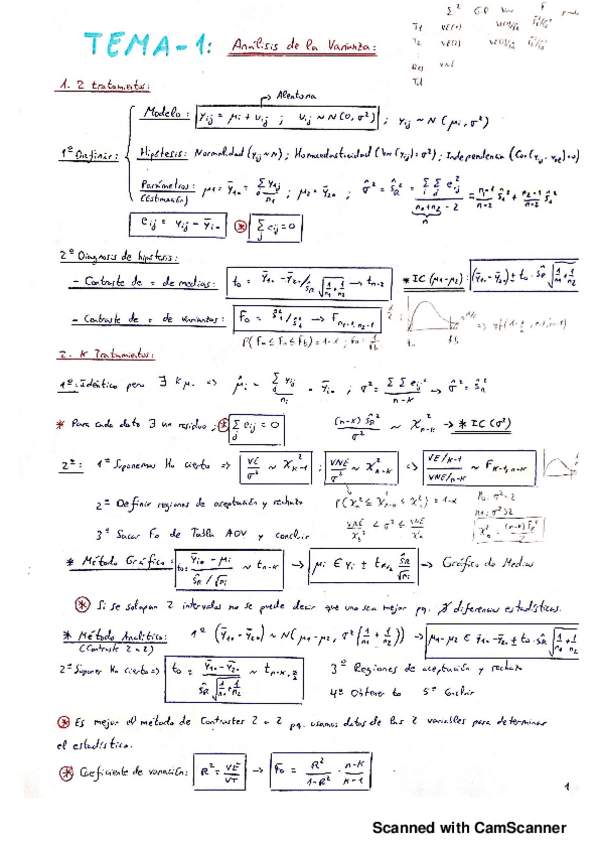 TEMA-1: Análisis de la Varianza:
Σ² G.D Var F
T1 VE(α)
T2 VE(β)
Res VNE
Tot
1. 2 tratamientos:
→ Aleatoria
Modelo: y_ij = μ_i + u_ij ; u_ij ~ N(0, σ²) ; y_ij ~ N(μ_i, σ²)
1º Definir: Hipótesis: Normalidad (y_ij ~ N) ; Homocedasticidad (Var(y_ij) = σ²) ; Independencia
Parámetros: (estimación) μ̂1 = ȳ1. = Σ y1j / n1 ; μ̂2 = ȳ2. ; σ̂² = ŝR² = ΣΣ e_ij² / (n1 + n2 - 2) = (n1-1)/(n-2) ŝ1² + (n2-1)/(n-2) ŝ2²
e_ij = y_ij - ȳ_i. * Σ e_ij = 0
2º Diagnosis de hipótesis:
- Contraste de = de medias: t0 = ȳ1. - ȳ2. / ŝR √(1/n1 + 1/n2) → t n-2 * IC (μ1-μ2): (ȳ1. - ȳ2.) ± t0 · ŝR √(1/n1 + 1/n2)
- Contraste de = de varianzas: F0 = ŝ1² / ŝ2² → F n1-1, n2-1
P(Fa ≤ F0 ≤ Fb) = 1-α
2. K Tratamientos:
1º: Idéntico pero ∃ K μ. => μ̂_i = Σ y_ij / n_i = ȳ_i. ; σ² = ΣΣ e_ij² / n-K → σ̂² = ŝR²
* Para cada dato ∃ un residuo ; * Σ e_ij = 0 (n-K) ŝR² / σ² ~ χ² n-K → * IC (σ²)
2º: 1º Suponemos H0 cierta => VE/σ² ~ χ² K-1 ; VNE/σ² ~ χ² n-K => (VE/K-1) / (VNE/n-K) ~ F K-1, n-K
2º Definir regiones de aceptación y rechazo
3º Sacar F0 de Tabla ADV y concluir
* Método Gráfico: t0 = (ȳ_i. - μ_i) / (ŝR / √n_i) ~ t n-K → μ_i ∈ ȳ_i ± t α/2 ŝR/√n_i → Gráfico de Medias
* Si se solapan 2 intervalos no se puede decir que uno sea mejor pq. ∄ diferencias estadísticas.
* Método Analítico: (Contraste 2 a 2) 1º (ȳ1. - ȳ2.) ~ N(μ1 - μ2, σ² (1/n1 + 1/n2)) → μ1 - μ2 ∈ ȳ1. - ȳ2. ± t0 · ŝR √(1/n1 + 1/n2)
2º Suponer H0 cierta => t0 = (ȳ1. - ȳ2.) / ŝR √(1/n1 + 1/n2) ~ t n-K, α/2 3º Regiones de aceptación y rechazo
4º Obtener t0 5º Concluir
* Es mejor el método de Contrastes 2 a 2 pq. usamos datos de las 2 variables para determinar
el estadístico.
* Coeficiente de variación: R² = VE/VT → F0 = R²/(1-R²) · (n-K)/(K-1)
1
Scanned with CamScanner